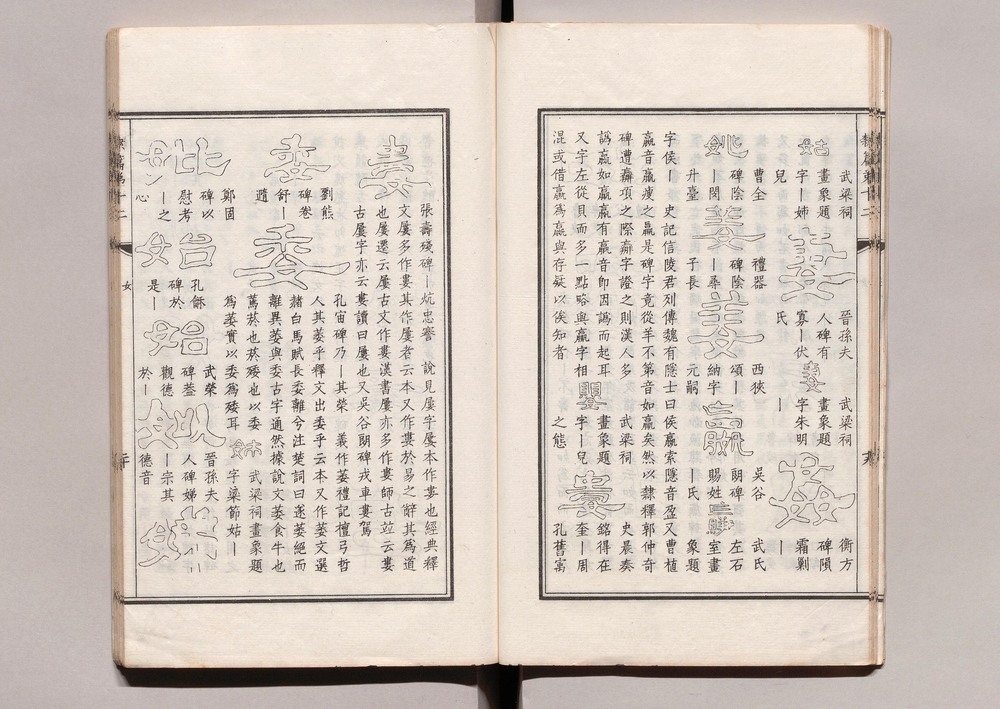 隸篇第十二
姑
武梁祠
畫象題
字丨姊
兒
妻
晉孫夫
人碑有
寡丨伏
氏
妻
武梁祠
畫象題
字朱明
丨
姦
衡方
碑隕
霜剿
丨
姚
曹全
碑陰
丨閔
升臺
姜
禮器
碑陰
丨尋
子長
姜
西狹
頌丨
納字
元嗣
嬴
吳谷
朗碑
賜姓
丨氏
武氏
左石
室畫
象題
字侯丨 史記信陵君列傳魏有隱士曰侯嬴索隱音盈又曹植
嬴音羸瘦之羸是碑字竟從羊不第音如羸矣然以隸釋郭仲奇
碑遭羸項之際羸字證之則漢人多
譌嬴如羸羸有嬴音卽因譌而起耳
又字左從貝而多一點略與贏字相
混或借嬴爲贏與存疑以俟知者
嬰
武梁祠
畫象題
字丨兒
之態
婁
史晨奏
銘得在
奎丨周
孔舊寓
婁
張壽殘碑丨炕忠謇 說見屢字屢本作婁也經典釋
文屢多作婁其作屢者云本又作婁於易之辭其爲道
也屢遷云屢古文作婁漢書屢亦多作婁師古竝云婁
古屢字亦云婁讀曰屢也又吳谷朗碑戎車婁駕
委
劉熊
碑卷
舒丨
隨
委
孔宙碑乃丨其榮 義作萎禮記檀弓哲
人其萎乎釋文出委乎云本又作萎文選
赭白馬賦長委離兮注楚詞曰遂萎絕而
離異萎與委古字通然據說文萎食牛也
菸也菸矮也以委
爲萎實以委爲矮耳
武梁祠畫象題
字梁節姑丨
妣
鄭固
碑以
慰考
丨之
心
始
孔龢
碑於
是丨
始
武榮
碑葢
觀德
於丨
姒
晉孫夫
人碑娣
丨宗其
德音
隸篇第十二
女